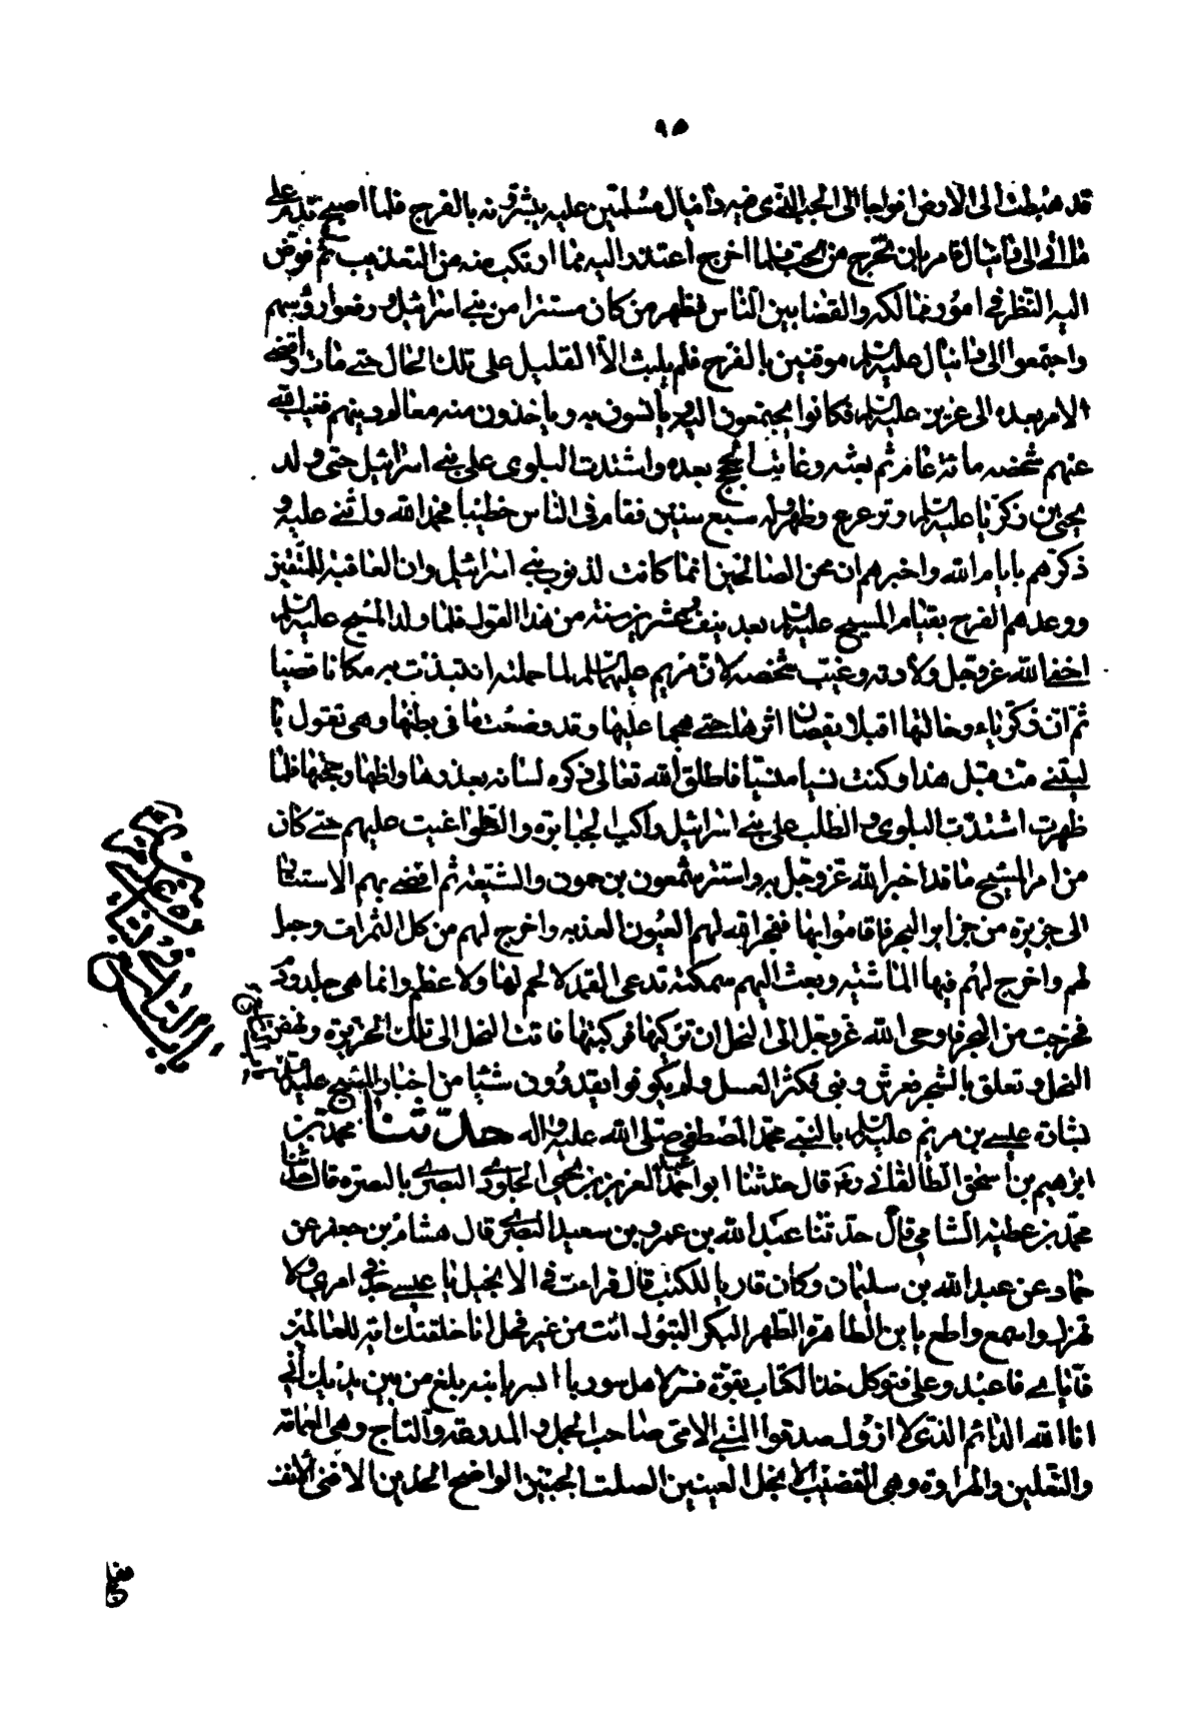 ٩٥
قد هبطت الى الارض افواجا الى الجب الذى فيه دانيال مسلمين عليه يبشرونه بالفرج فلما اصبح ندم على
ما اتى الى دانيال فامر بان تخرج من الجب فلما اخرج اعتذر اليه مما ارتكب منه من التعذيب ثم فوض
اليه النظر فى امور ممالكه والقضا بين الناس فظهر من كان مستترا من بنى اسرائيل ورفعوا رؤسهم
واجتمعوا الى دانيال عليه السلام موقنين بالفرج فلم يلبث الا القليل على تلك الحال حتى مات وافضى
الامر بعده الى عزير عليه السلام فكانوا يجتمعون اليه ويأنسون به وياخذون منه معالم دينهم فغيب الله
عنهم شخصه مائة عام ثم بعثه وغابت الحجج بعده واشتدت البلوى على بنى اسرائيل حتى ولد
يحيى بن زكريا عليه السلام وترعرع وظهر وله سبع سنين فقام فى الناس خطيبا فحمد الله واثنى عليه و
ذكرهم بايام الله واخبرهم ان محن الصالحين انما كانت لذنوب بنى اسرائيل وان العاقبة للمتقين
ووعدهم الفرج بقيام المسيح عليه السلام بعد نيف وعشرين سنة من هذا القول فلما ولد المسيح عليه السلام
اخفى الله عز وجل ولادته وغيب شخصه لان مريم عليها السلام لما حملته انتبذت به مكانا قصيا
ثم ان زكرياء وخالتها اقبلا يقصان اثرها حتى هجما عليها وقد وضعت ما فى بطنها وهى تقول يا
ليتنى مت قبل هذا وكنت نسيا منسيا فاطلق الله تعالى ذكره لسانه بعذرها واظهار حجتها فلما
ظهرت اشتدت البلوى والطلب على بنى اسرائيل واكب الجبابرة والطواغيت عليهم حتى كان
من امر المسيح ما قد اخبر الله عز وجل به واستتر شمعون بن حمون والشيعة ثم افضى بهم الاستتار
الى جزيرة من جزاير البحر فاقاموا بها ففجر الله لهم العيون العذبه واخرج لهم من كل الثمرات وجعل
لهم واخرج لهم فيها الماشية وبعث اليهم سمكة تدعى القمد لا لحم لها ولا عظم وانما هى جلد ودم
فخرجت من البحر فاوحى الله عز وجل الى النحل ان تركبها فركبتها فاتت النحل الى تلك الجزيرة ونهض
النحل وتعلق بالشجر فعرش وبنى فكثر العسل ولم يكونوا يفقدون شيئا من اخبار المسيح عليه السلام
بشارة عيسى بن مريم عليه السلام بالنبى محمد المصطفى صلى الله عليه واله حدثنا محمد بن
ابرهيم بن اسحق الطالقانى رضه قال حدثنا ابو احمد عبد العزيز بن يحيى الجلودى البصرى بالبصرة قال حدثنا
محمد بن عطية الشامى قال حدثنا عبد الله بن عمرو بن سعيد البصرى قال هشام بن جعفر عن
حماد عن عبد الله بن سليمان وكان قاريا للكتب قال قراءت فى الانجيل يا عيسى جد فى امرى ولا
تهزل واسمع واطع يا بن الطاهرة الطهر البكر البتول اتيت من غير فحل انا خلقتك اية للعالمين
فاياى فاعبد وعلى فتوكل خذ الكتاب بقوة فسر لاهل سوريا السريانيه بلغ من بين يديك انى
انا الله الدائم الذى لا ازول صدقوا النبى الامى صاحب الجمل والمدرعة والتاج وهى العمامة
والنعلين والهراوة وهى القضيب الانجل العينين الصلت الجبين الواضح الخدين الاقنى الانف